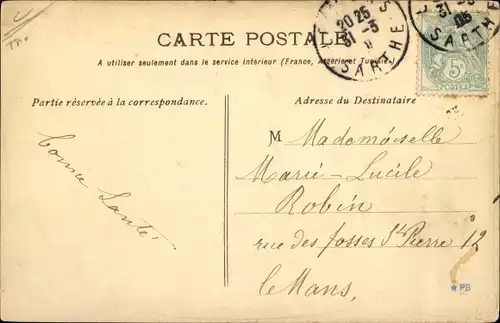 CARTE POSTALE
A utiliser seulement dans le service intérieur (France, Algérie et Tunisie.)
Partie réservée à la correspondance.
Adresse du Destinataire
bonne Santé
M Mademoiselle
Marie-Lucile
Robin
rue des fosses St Pierre 12
le Mans,
20 25
31 - 3
SARTHE
31 - 3
05
SARTHE
5
POSTES
PB